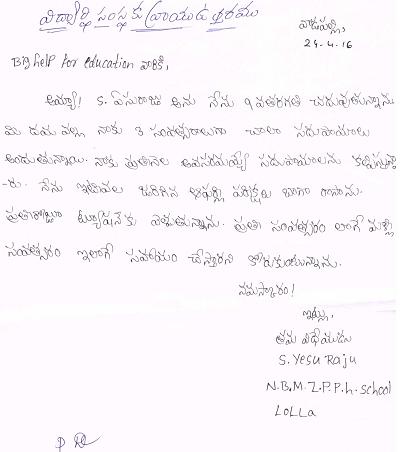 విద్యార్థి సంస్థకు వ్రాయుడు శరము
వాడపల్లి,
24-4-16
Big help for education వారికి,
అయ్యా! S. ఏసురాజు అను నేను 9 వతరగతి చదువుతున్నాను
మీ దయ వల్ల నాకు 3 సంవత్సరాలుగా చాలా సదుపాయాలు
అందుతున్నాయి. నాకు ప్రతినెల అవసరమయ్యే సదుపాయాలను కల్పిస్తున్నా
-రు. నేను ఇటీవల జరిగిన ఏప్రిల్ల పరీక్షలు బాగా రాసాను.
ప్రతిరోజూ ట్యూషన్‌కు వెళుతున్నాను. ప్రతి సంవత్సరం లాంగే మళ్లీ
సంవత్సరం ఇలాగే సహాయం చేస్తారని కోరుకుంటున్నాను.
నమస్కారం!
ఇట్లు,
తమ విధేయుడు
S. Yesu Raju
N.B.M.Z.P.P.h. school
LOLLa